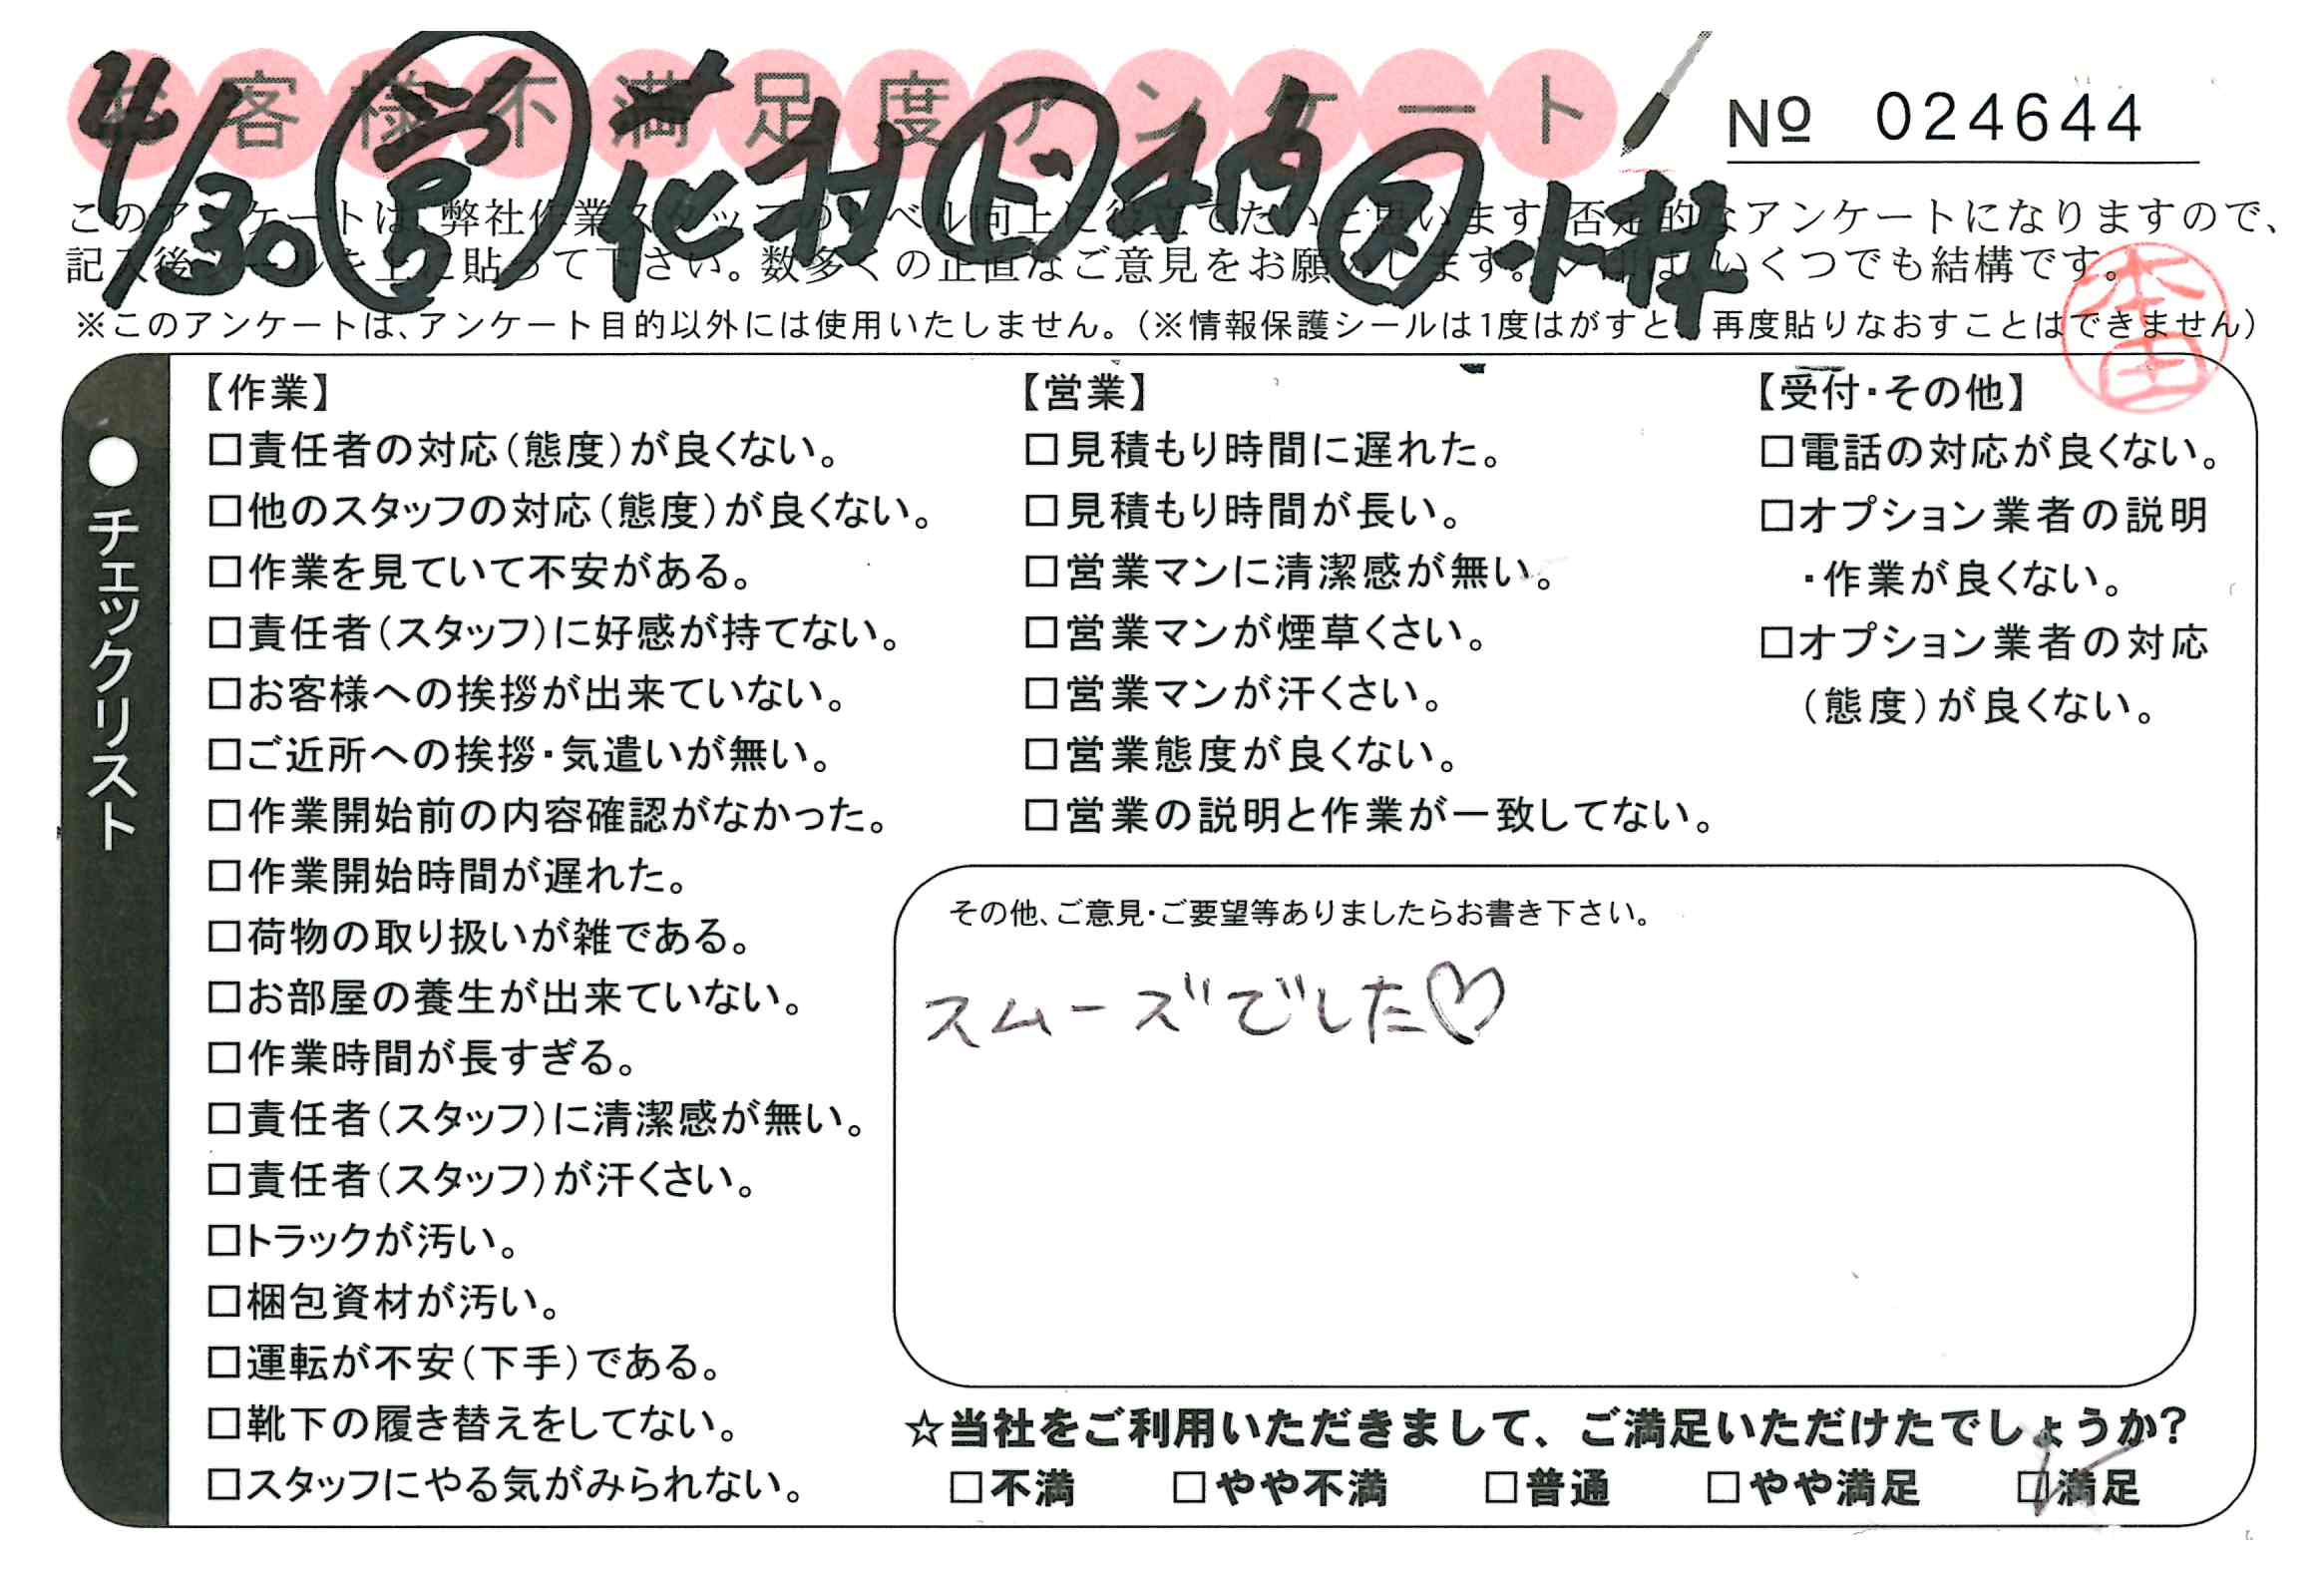 お客様不満足度アンケート
№ 024644
4/30 ㊂ 花村 ㋣ 稍 ㋱ 小林
このアンケートは、弊社作業スタッフのレベル向上に役立てたいと思います。否定的なアンケートになりますので、
記入後シールを上に貼って下さい。数多くの正直なご意見をお願いします。 いくつでも結構です。
※このアンケートは、アンケート目的以外には使用いたしません。(※情報保護シールは1度はがすと、再度貼りなおすことはできません)
本田
●チェックリスト
【作業】
□責任者の対応(態度)が良くない。
□他のスタッフの対応(態度)が良くない。
□作業を見ていて不安がある。
□責任者(スタッフ)に好感が持てない。
□お客様への挨拶が出来ていない。
□ご近所への挨拶・気遣いが無い。
□作業開始前の内容確認がなかった。
□作業開始時間が遅れた。
□荷物の取り扱いが雑である。
□お部屋の養生が出来ていない。
□作業時間が長すぎる。
□責任者(スタッフ)に清潔感が無い。
□責任者(スタッフ)が汗くさい。
□トラックが汚い。
□梱包資材が汚い。
□運転が不安(下手)である。
□靴下の履き替えをしてない。
□スタッフにやる気がみられない。
【営業】
□見積もり時間に遅れた。
□見積もり時間が長い。
□営業マンに清潔感が無い。
□営業マンが煙草くさい。
□営業マンが汗くさい。
□営業態度が良くない。
□営業の説明と作業が一致してない。
【受付・その他】
□電話の対応が良くない。
□オプション業者の説明
・作業が良くない。
□オプション業者の対応
(態度)が良くない。
その他、ご意見・ご要望等ありましたらお書き下さい。
スムーズでした♡
☆当社をご利用いただきまして、ご満足いただけたでしょうか?
□不満 □やや不満 □普通 □やや満足 ☑満足